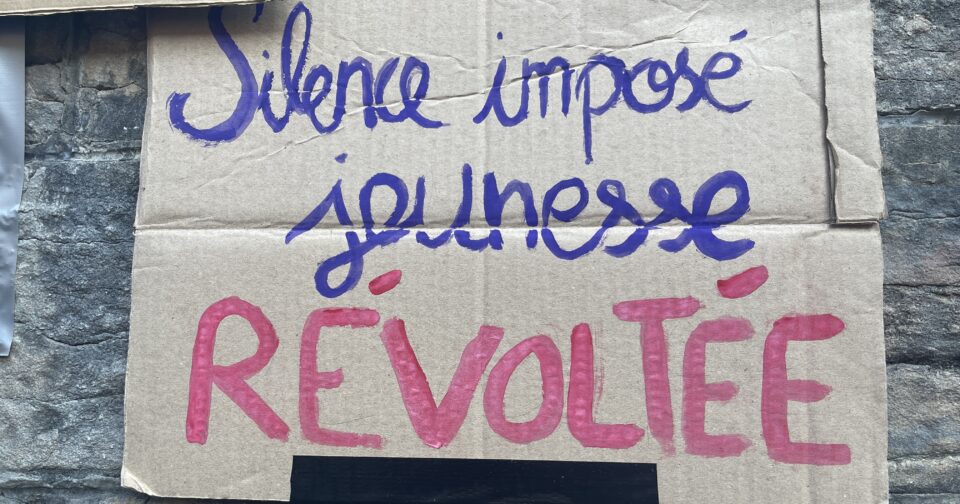 Silence imposé
jeunesse
RÉVOLTÉE